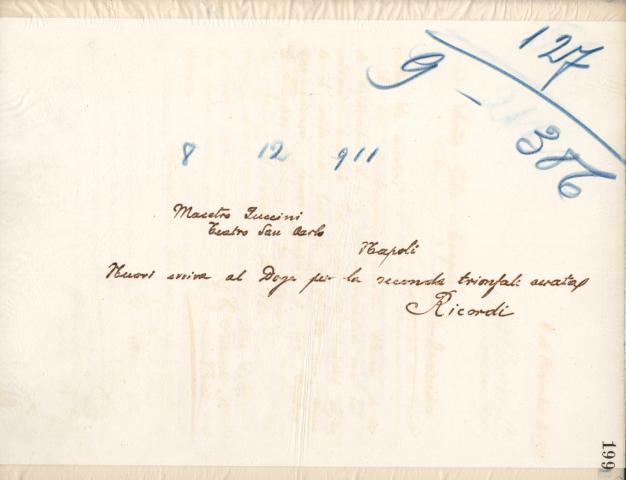 127
9 - 386
8 12 911
Maestro Puccini
Teatro San Carlo
Napoli
Nuovi evviva al Doge per la seconda trionfal: serata
Ricordi
199